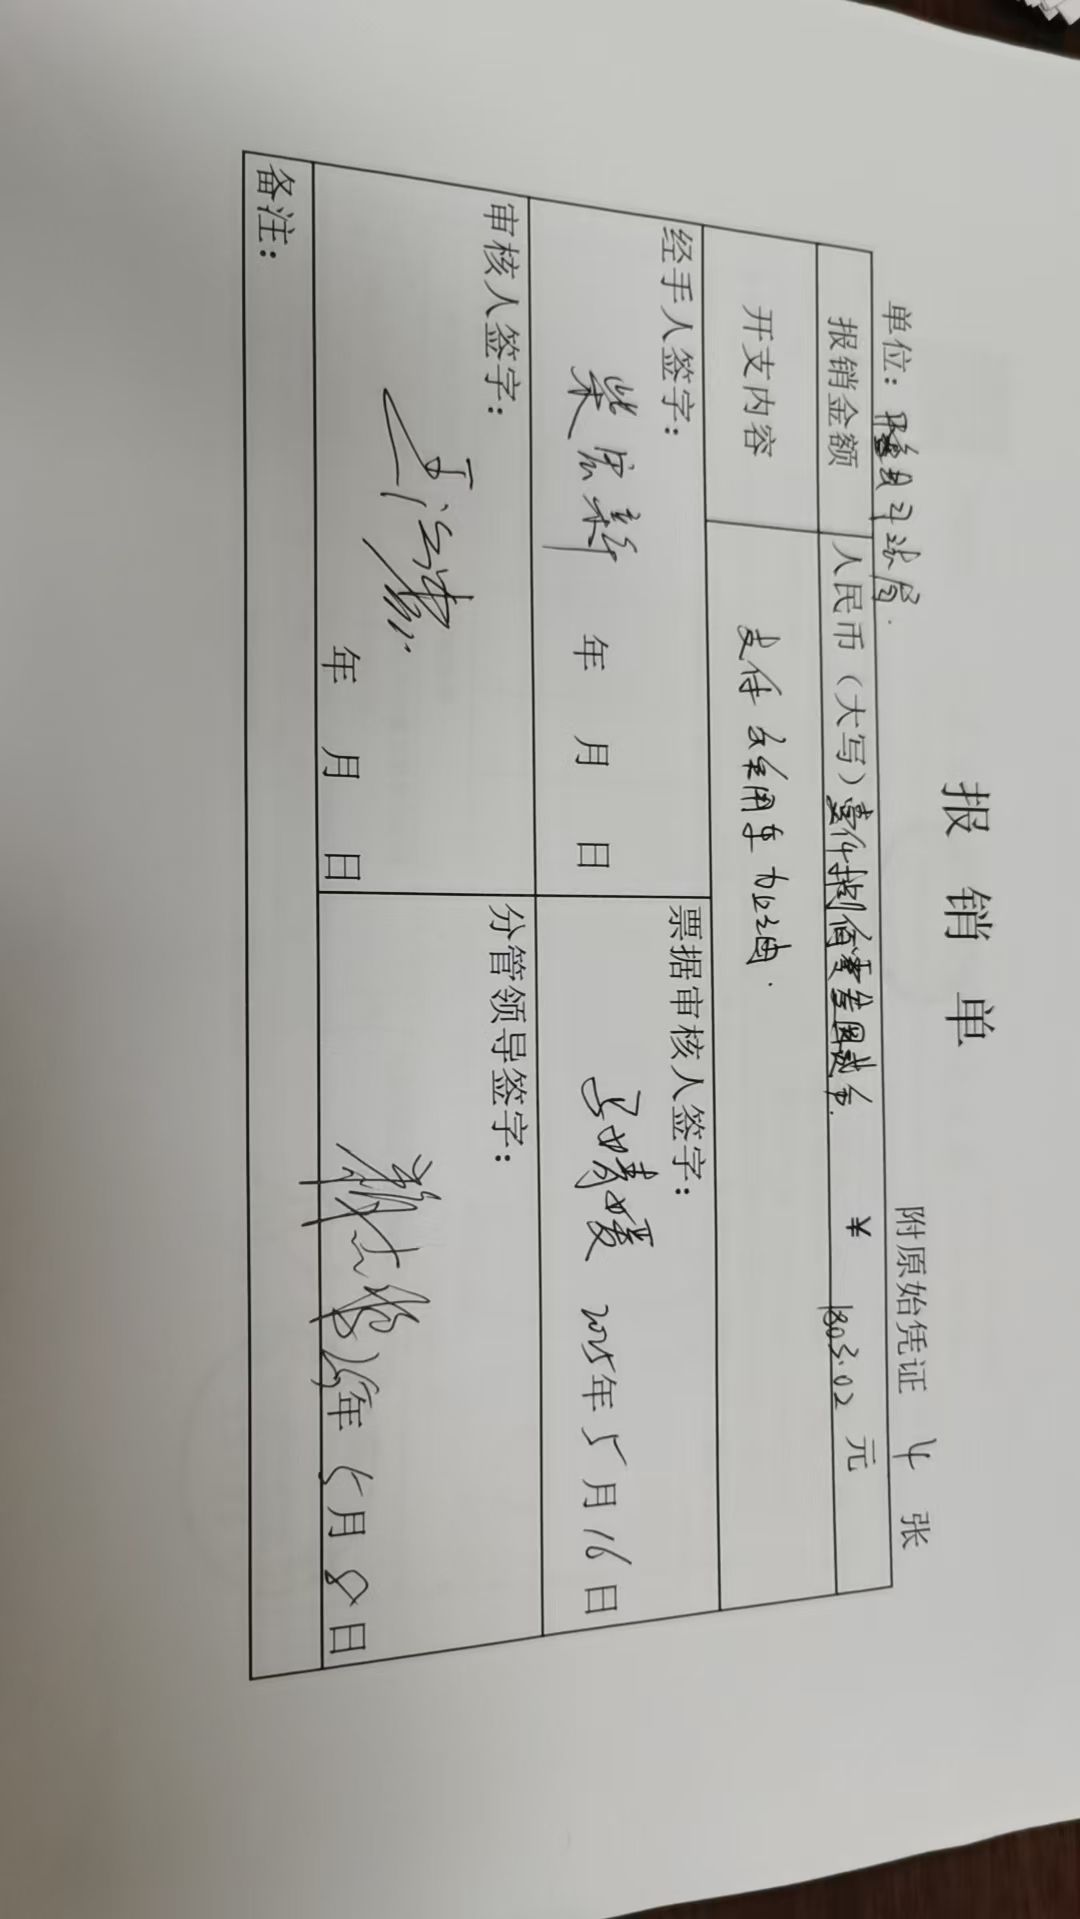 报 销 单
单位：隆县司法局. 附原始凭证 4 张
报销金额 人民币（大写）壹仟捌佰零叁圆贰分. ¥ 1803.02 元
开支内容 支付公务用车加油.
经手人签字： 票据审核人签字：
柴宏新 年 月 日 马婧媛 2025年 5月 16日
审核人签字： 分管领导签字：
年 月 日 25年 5月 8日
备注：